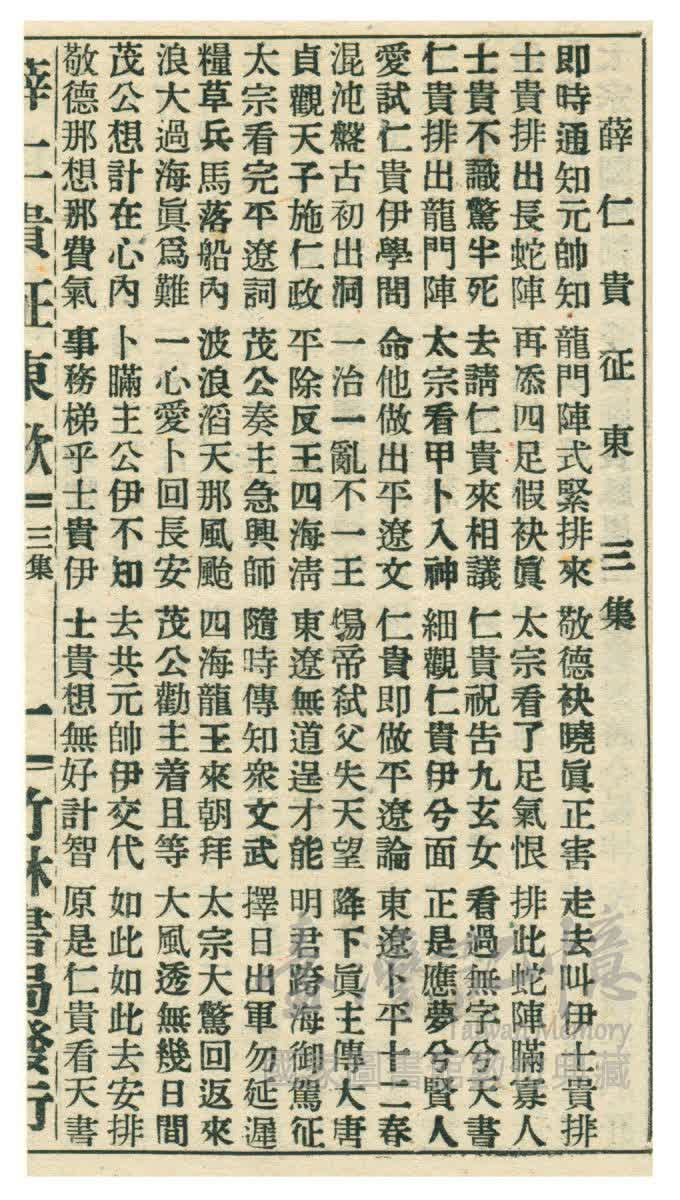 薛仁貴征東 三集
即時通知元帥知 龍門陣式緊排來 敬德袂曉眞正害 走去叫伊士貴排
士貴排出長蛇陣 再添四足假袂眞 太宗看了足氣恨 排此蛇陣瞞寡人
士貴不識驚半死 去請仁貴來相議 仁貴祝告九玄女 看過無字兮天書
仁貴排出龍門陣 太宗看甲卜入神 細觀仁貴伊兮面 正是應夢兮賢人
愛試仁貴伊學問 命他做出平遼文 仁貴即做平遼論 東遼卜平十二春
混沌盤古初出洞 一治一亂不一王 煬帝弒父失天望 降下眞主傳大唐
貞觀天子施仁政 平除反王四海淸 東遼無道逞才能 明君跨海御駕征
太宗看完平遼詞 茂公奏主急興師 隨時傳知衆文武 擇日出軍勿延遲
糧草兵馬落船內 波浪滔天那風颱 四海龍王來朝拜 太宗大驚回返來
浪大過海眞爲難 一心愛卜回長安 茂公勸主着且等 大風透無幾日間
茂公想計在心內 卜瞞主公伊不知 去共元帥伊交代 如此如此去安排
敬德那想那費氣 事務梯乎士貴伊 士貴想無好計智 原是仁貴看天書
薛仁貴征東歌=三集 一=竹林書局發行
臺灣記憶
Taiwan Memory
國家圖書館數位典藏